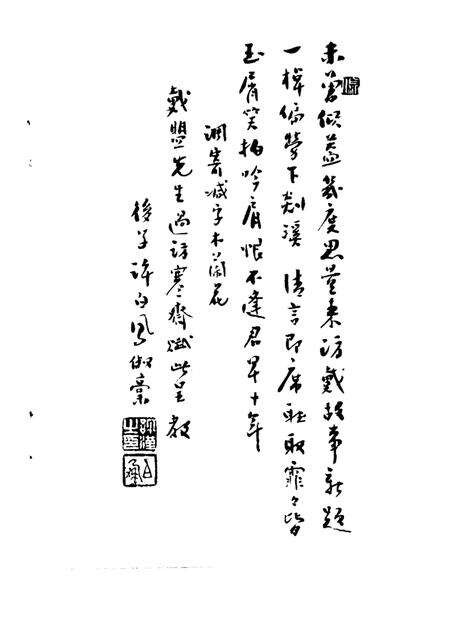 未曾傾蓋幾度思量來訪戴故事新題
一棹偏勞下剡溪 清言即席聽取霏々皆
玉屑笑拍吟肩恨不逢君早十年
調寄減字木蘭花
戴盟先生過訪寒齋賦此呈教
後學許白鳳稾